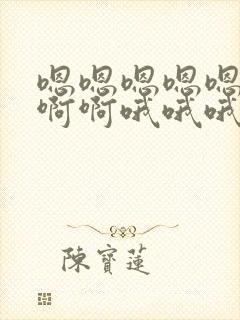 嗯嗯嗯嗯嗯
啊啊哦哦哦
陳寶蓮